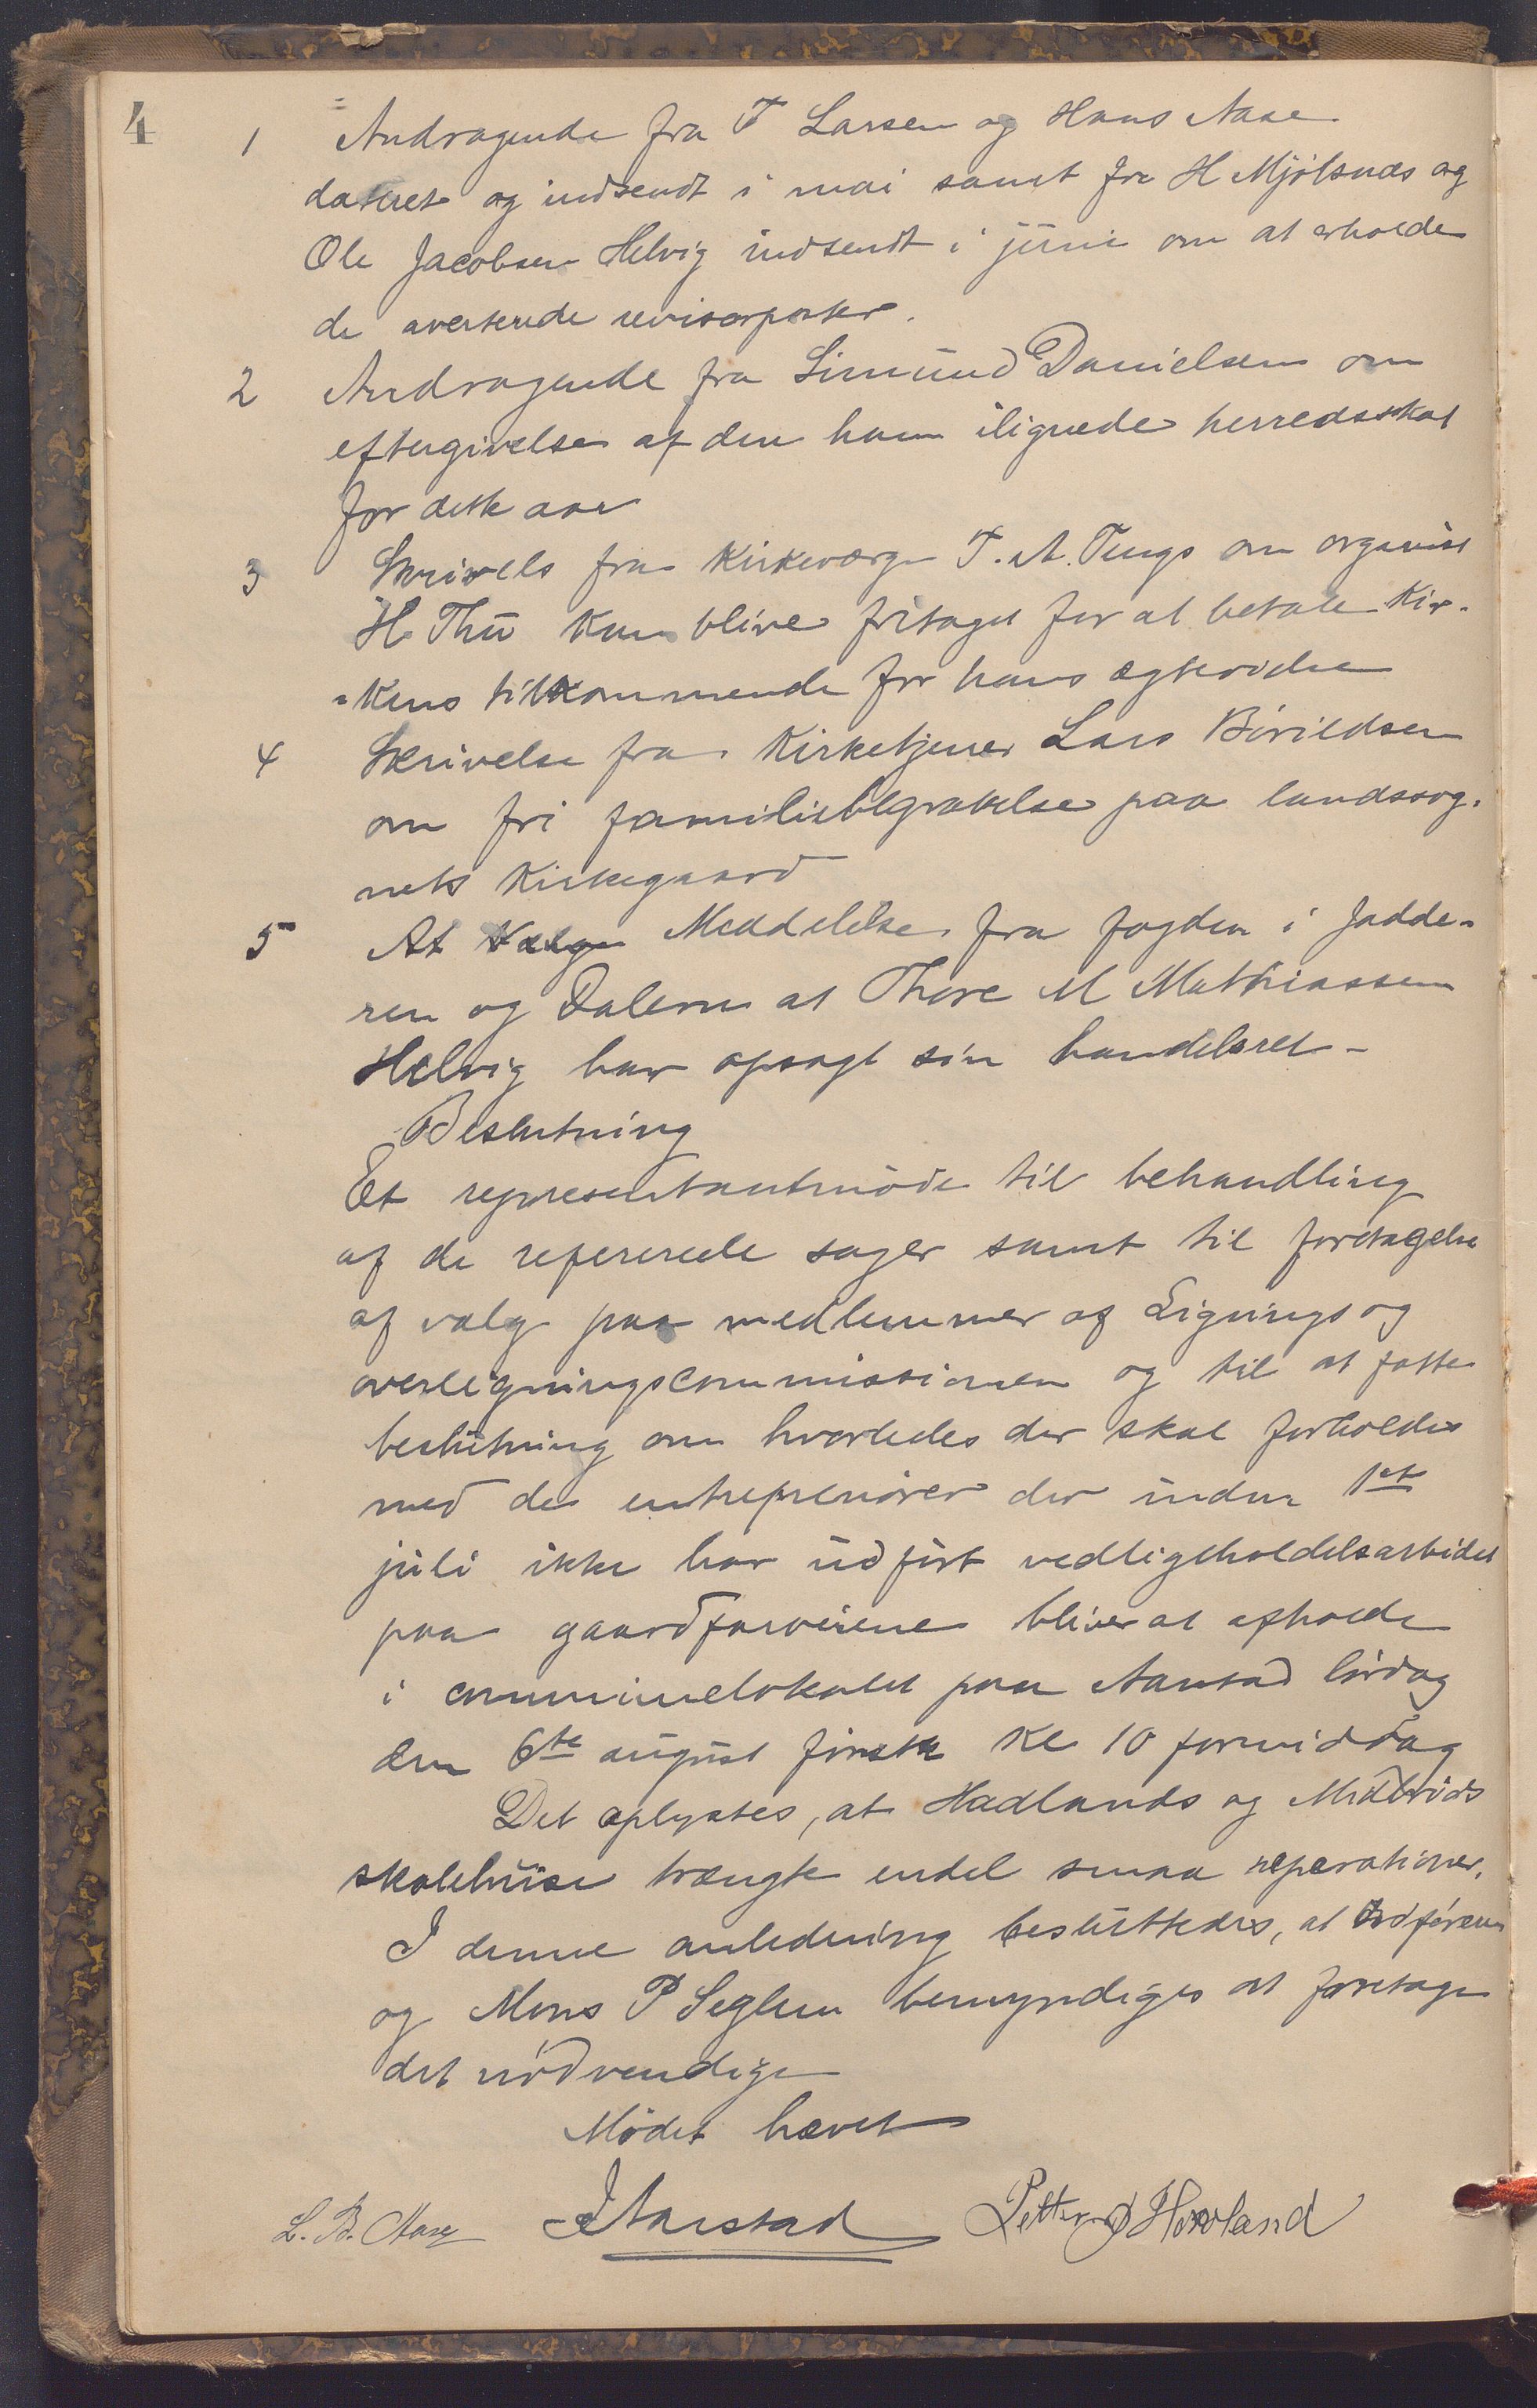 4
1 Andragende fra T Larsen og Hans Aase
dateret og indsendt i mai samt fra H Mjölsnes og
Ole Jacobsen Helvig indsendt i juni om at erholde
de averterede revisorposter.
2 Andragende fra Simund Danielsen om
eftergivelse af den ham ilignede herredsskat
for dette aar
3 Skrivels fra Kirkeværge T. A. Tengs om organist
H. Thu kan blive fritaget for at betale Kir-
-kens tilkommende for hans ægtevidse
4 Skrivelse fra Kirketjener Lars Börildsen
om fri familiebegravelse paa landssog-
nets Kirkegaard
5 At Valg Meddelelse fra fogden i Jædde-
ren og Dalerne at Thore M Mathiassen
Helvig har opsagt sin handelsret-
Beslutning
Et representantmöde til behandling
af de refererede sager samt til foretagelse
af valg paa medlemmer af Lignings og
overligningscommissionen og til at fatte
beslutning om hvorledes der skal forholdes
med de entreprenörer der inden 1ste
juli ikke har udfört vedligeholdelsarbeidet
paa gaardfarveiene bliver at afholde
i communelokalet paa Aarstad lördag
den 6te august förstk Kl 10 formiddag
Det oplystes, at Hadlands og Midbröds
skolehuse trængte endel smaa reparationer.
I denne anledning besluttedes, at Ordföreren
og Mons P Seglem bemyndiges at foretage
det nödvendige
Mödet hævet
L. B. Aase J Aarstad Petter J Hovland